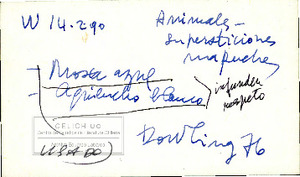 W 14-290
Animales -
supersticiones
mapuches
- Mosca azul
- Aguilucho blanco
infunden
respeto
CELICH UC
USADO
Dowling 76